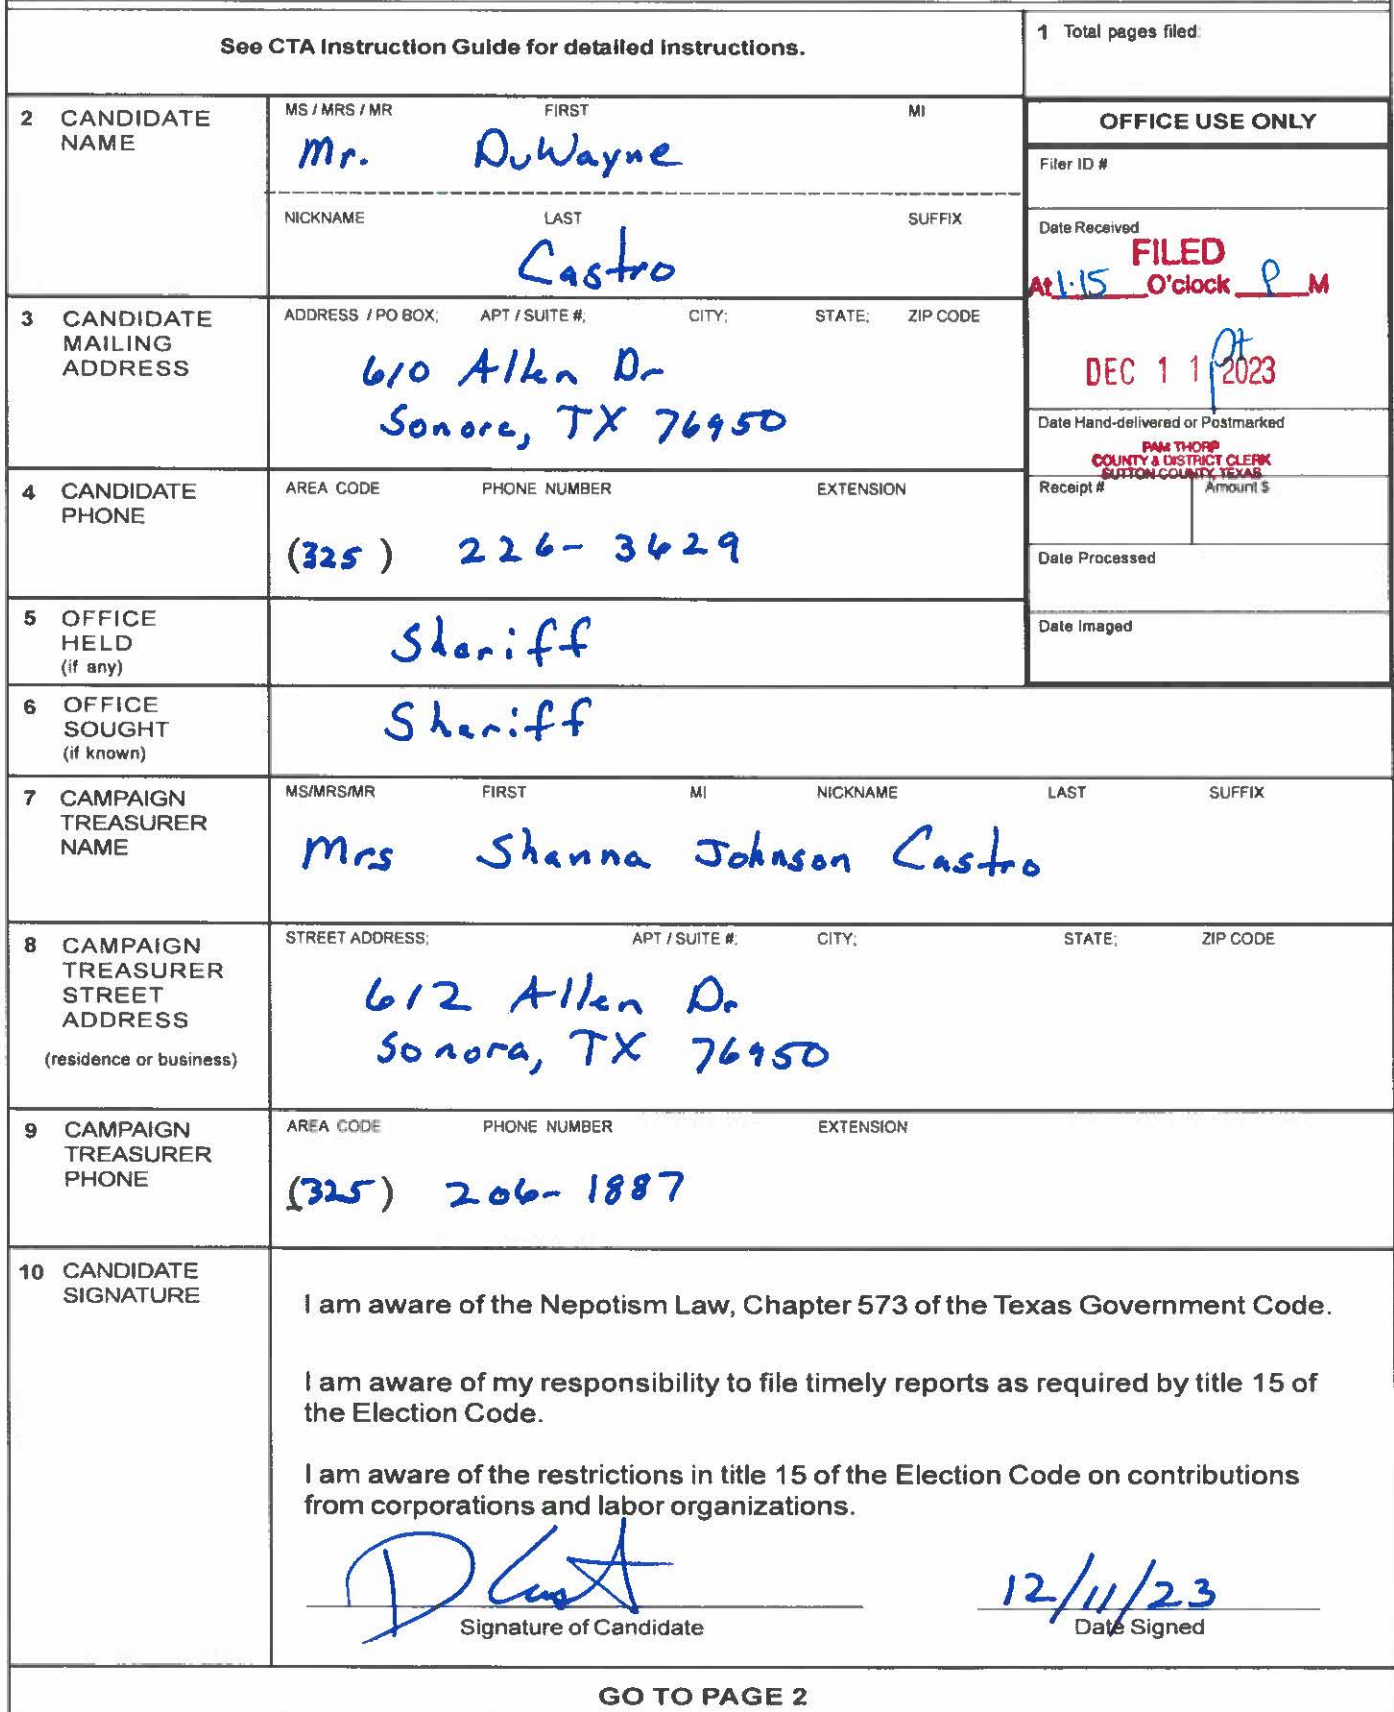 See CTA Instruction Guide for detailed instructions.
1 Total pages filed:
2 CANDIDATE NAME
MS / MRS / MR FIRST MI
Mr. DuWayne
NICKNAME LAST SUFFIX
Castro
OFFICE USE ONLY
Filer ID #
Date Received
FILED
At 1:15 O'clock P M
DEC 1 1 2023
pt
Date Hand-delivered or Postmarked
PAM THORP
COUNTY & DISTRICT CLERK
SUTTON COUNTY, TEXAS
Receipt # Amount $
Date Processed
Date Imaged
3 CANDIDATE MAILING ADDRESS
ADDRESS / PO BOX; APT / SUITE #; CITY; STATE; ZIP CODE
610 Allen Dr
Sonora, TX 76950
4 CANDIDATE PHONE
AREA CODE PHONE NUMBER EXTENSION
(325) 226-3629
5 OFFICE HELD (if any)
Sheriff
6 OFFICE SOUGHT (if known)
Sheriff
7 CAMPAIGN TREASURER NAME
MS/MRS/MR FIRST MI NICKNAME LAST SUFFIX
Mrs Shanna Johnson Castro
8 CAMPAIGN TREASURER STREET ADDRESS
(residence or business)
STREET ADDRESS; APT / SUITE #; CITY; STATE; ZIP CODE
612 Allen Dr
Sonora, TX 76950
9 CAMPAIGN TREASURER PHONE
AREA CODE PHONE NUMBER EXTENSION
(325) 206-1887
10 CANDIDATE SIGNATURE
I am aware of the Nepotism Law, Chapter 573 of the Texas Government Code.
I am aware of my responsibility to file timely reports as required by title 15 of
the Election Code.
I am aware of the restrictions in title 15 of the Election Code on contributions
from corporations and labor organizations.
12/11/23
Signature of Candidate Date Signed
GO TO PAGE 2